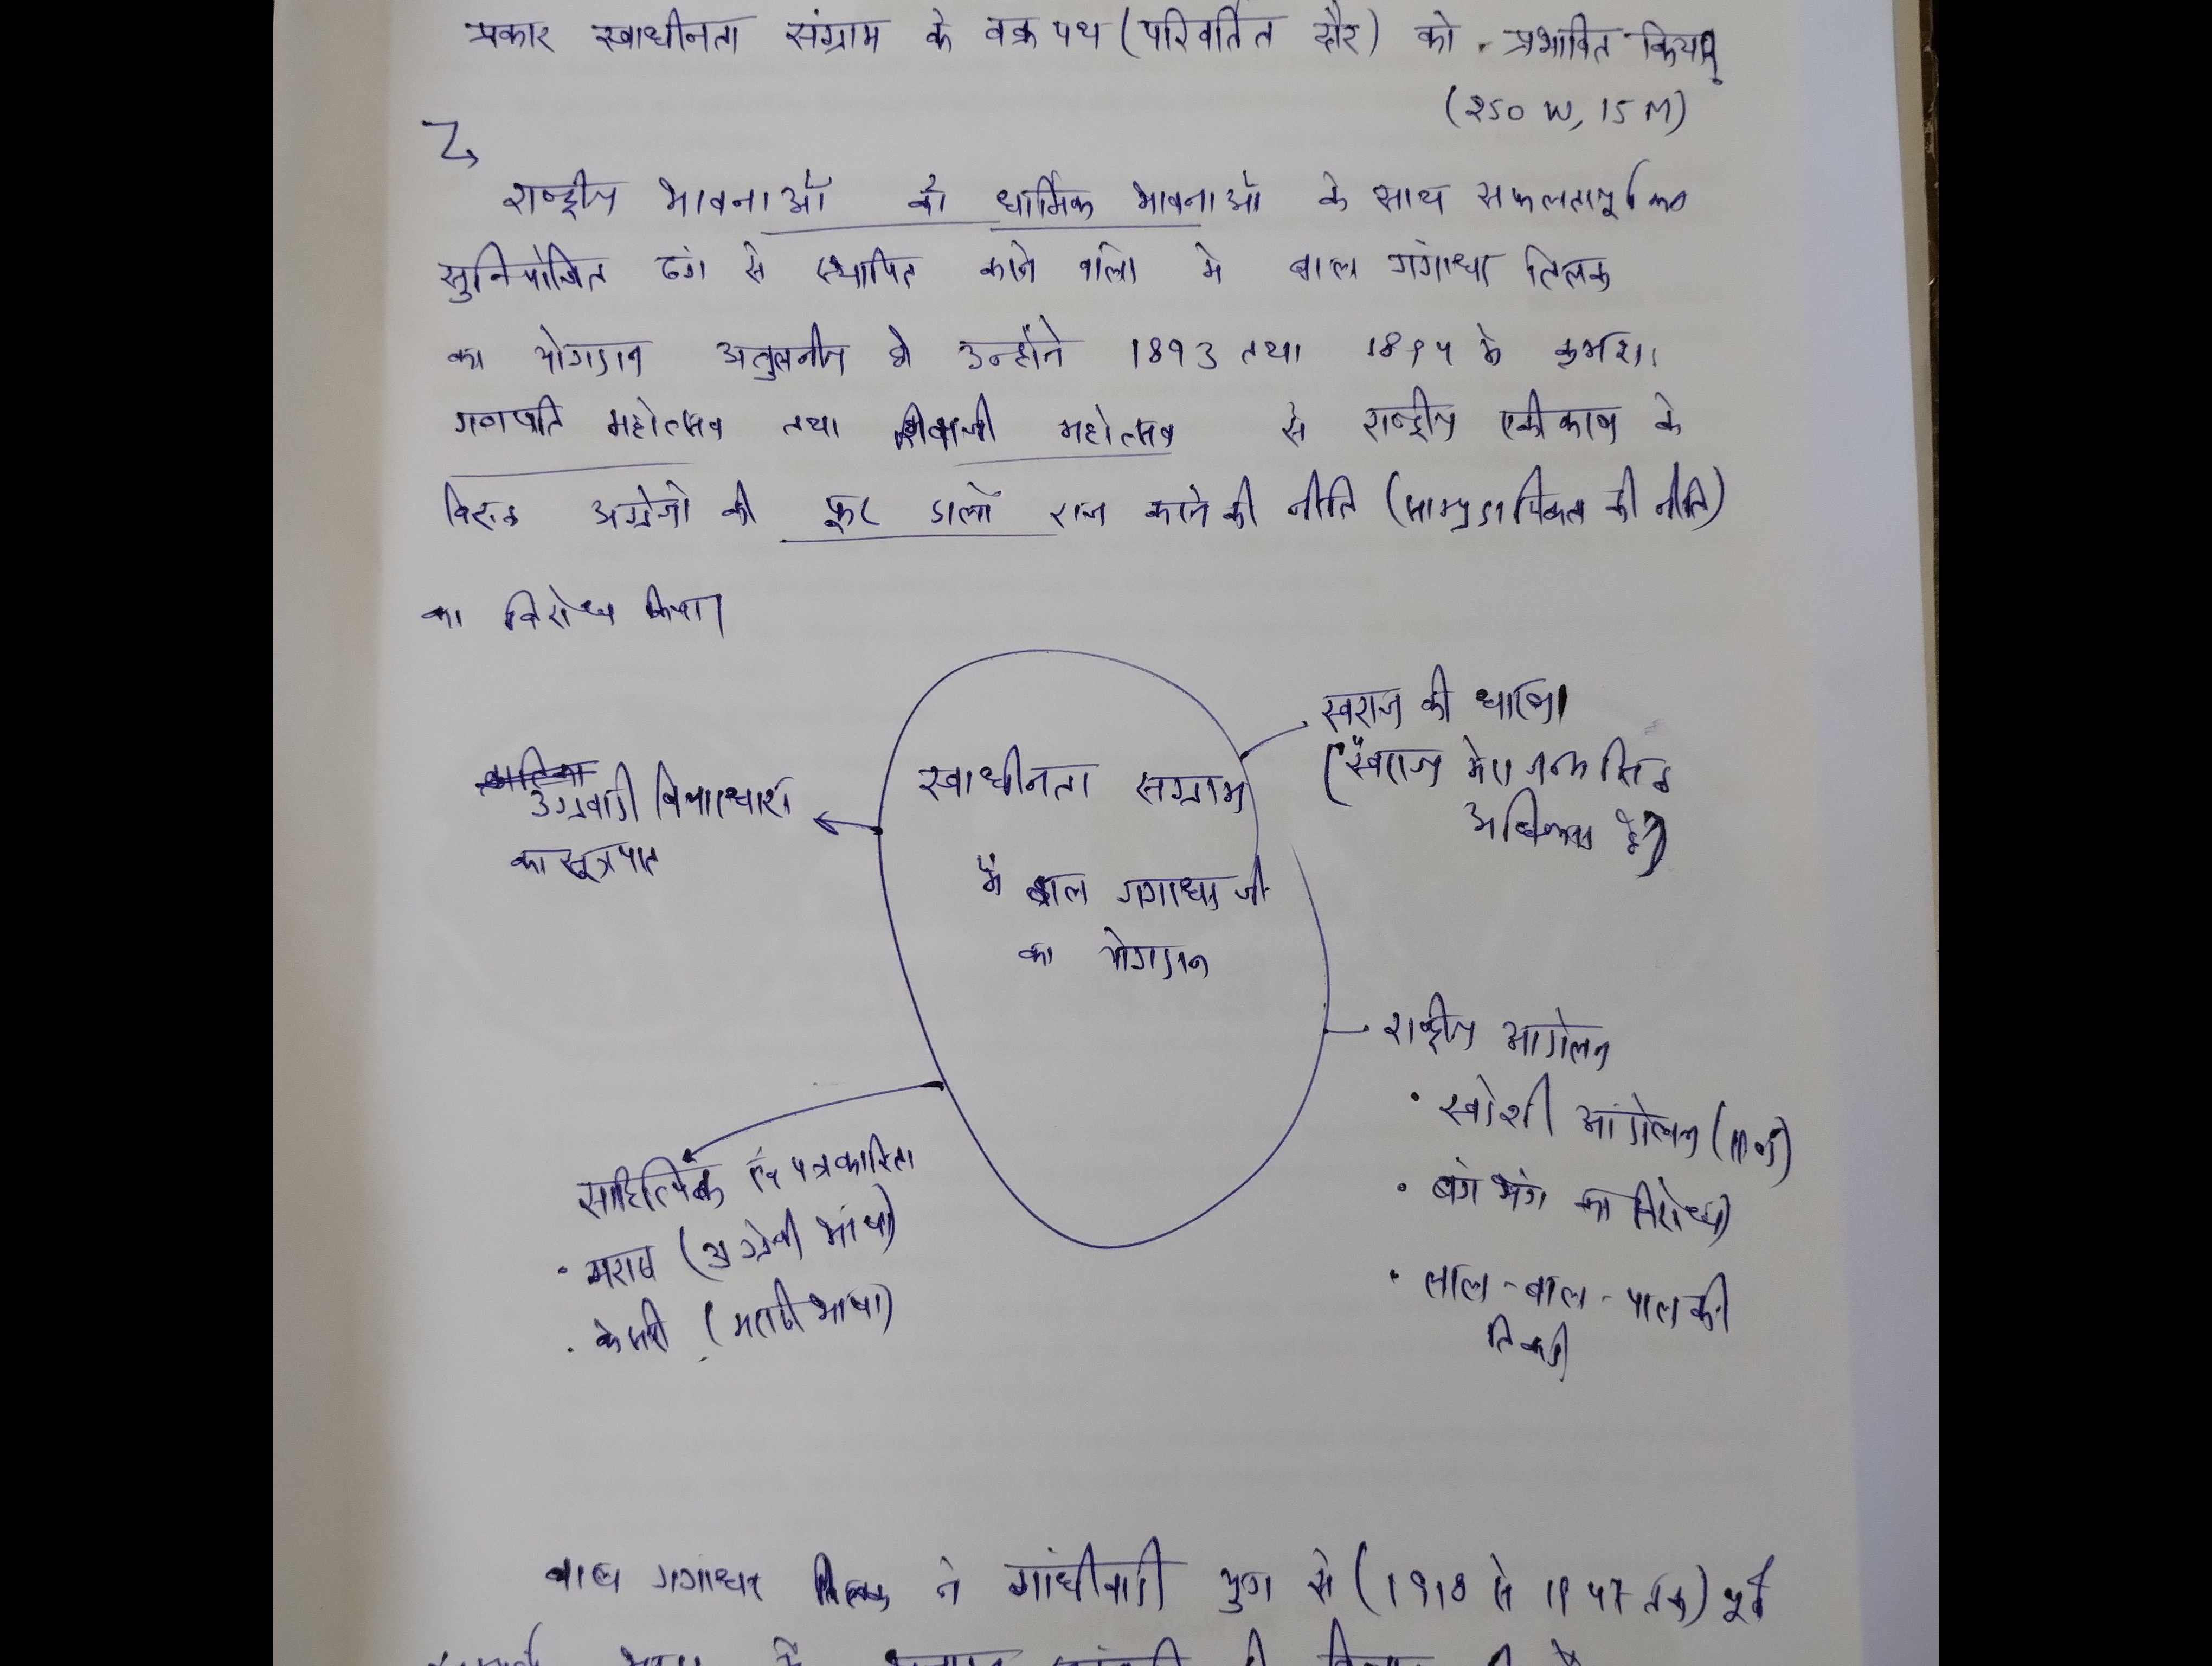 प्रकार स्वाधीनता संग्राम के वक्र पथ (परिवर्तित दौर) को प्रभावित किया।
(250 W, 15 M)
राष्ट्रीय भावनाओं को धार्मिक भावनाओं के साथ सफलतापूर्वक
सुनियोजित ढंग से स्थापित करने वालो मे बाल गंगाधर तिलक
का योगदान अतुलनीय है उन्होंने 1893 तथा 1895 मे क्रमशः
गणपति महोत्सव तथा शिवाजी महोत्सव से राष्ट्रीय एकीकरण के
विरुद्ध अग्रेजो की फूट डालों राज करने की नीति (साम्प्रदायिकता की नीति)
का विरोध किया।
स्वाधीनता सग्राम
में बाल गगाधर जी
का योगदान
स्वराज की धारणा
("स्वराज मेरा जन्म सिद्ध
अधिकार है")
उग्रवादी विचारधारा
का सूत्रपात
राष्ट्रीय आदोलन
• स्वदेशी आंदोलन
• बंग भंग का विरोध
• लाल-बाल-पाल की
तिकड़ी
साहित्यिक एवं पत्रकारिता
• मराठा (अग्रेजी भाषा)
• केसरी (मराठी भाषा)
बाल गगाधर तिलक ने गांधीवादी युग से (1918 से 1947 तक) पूर्व